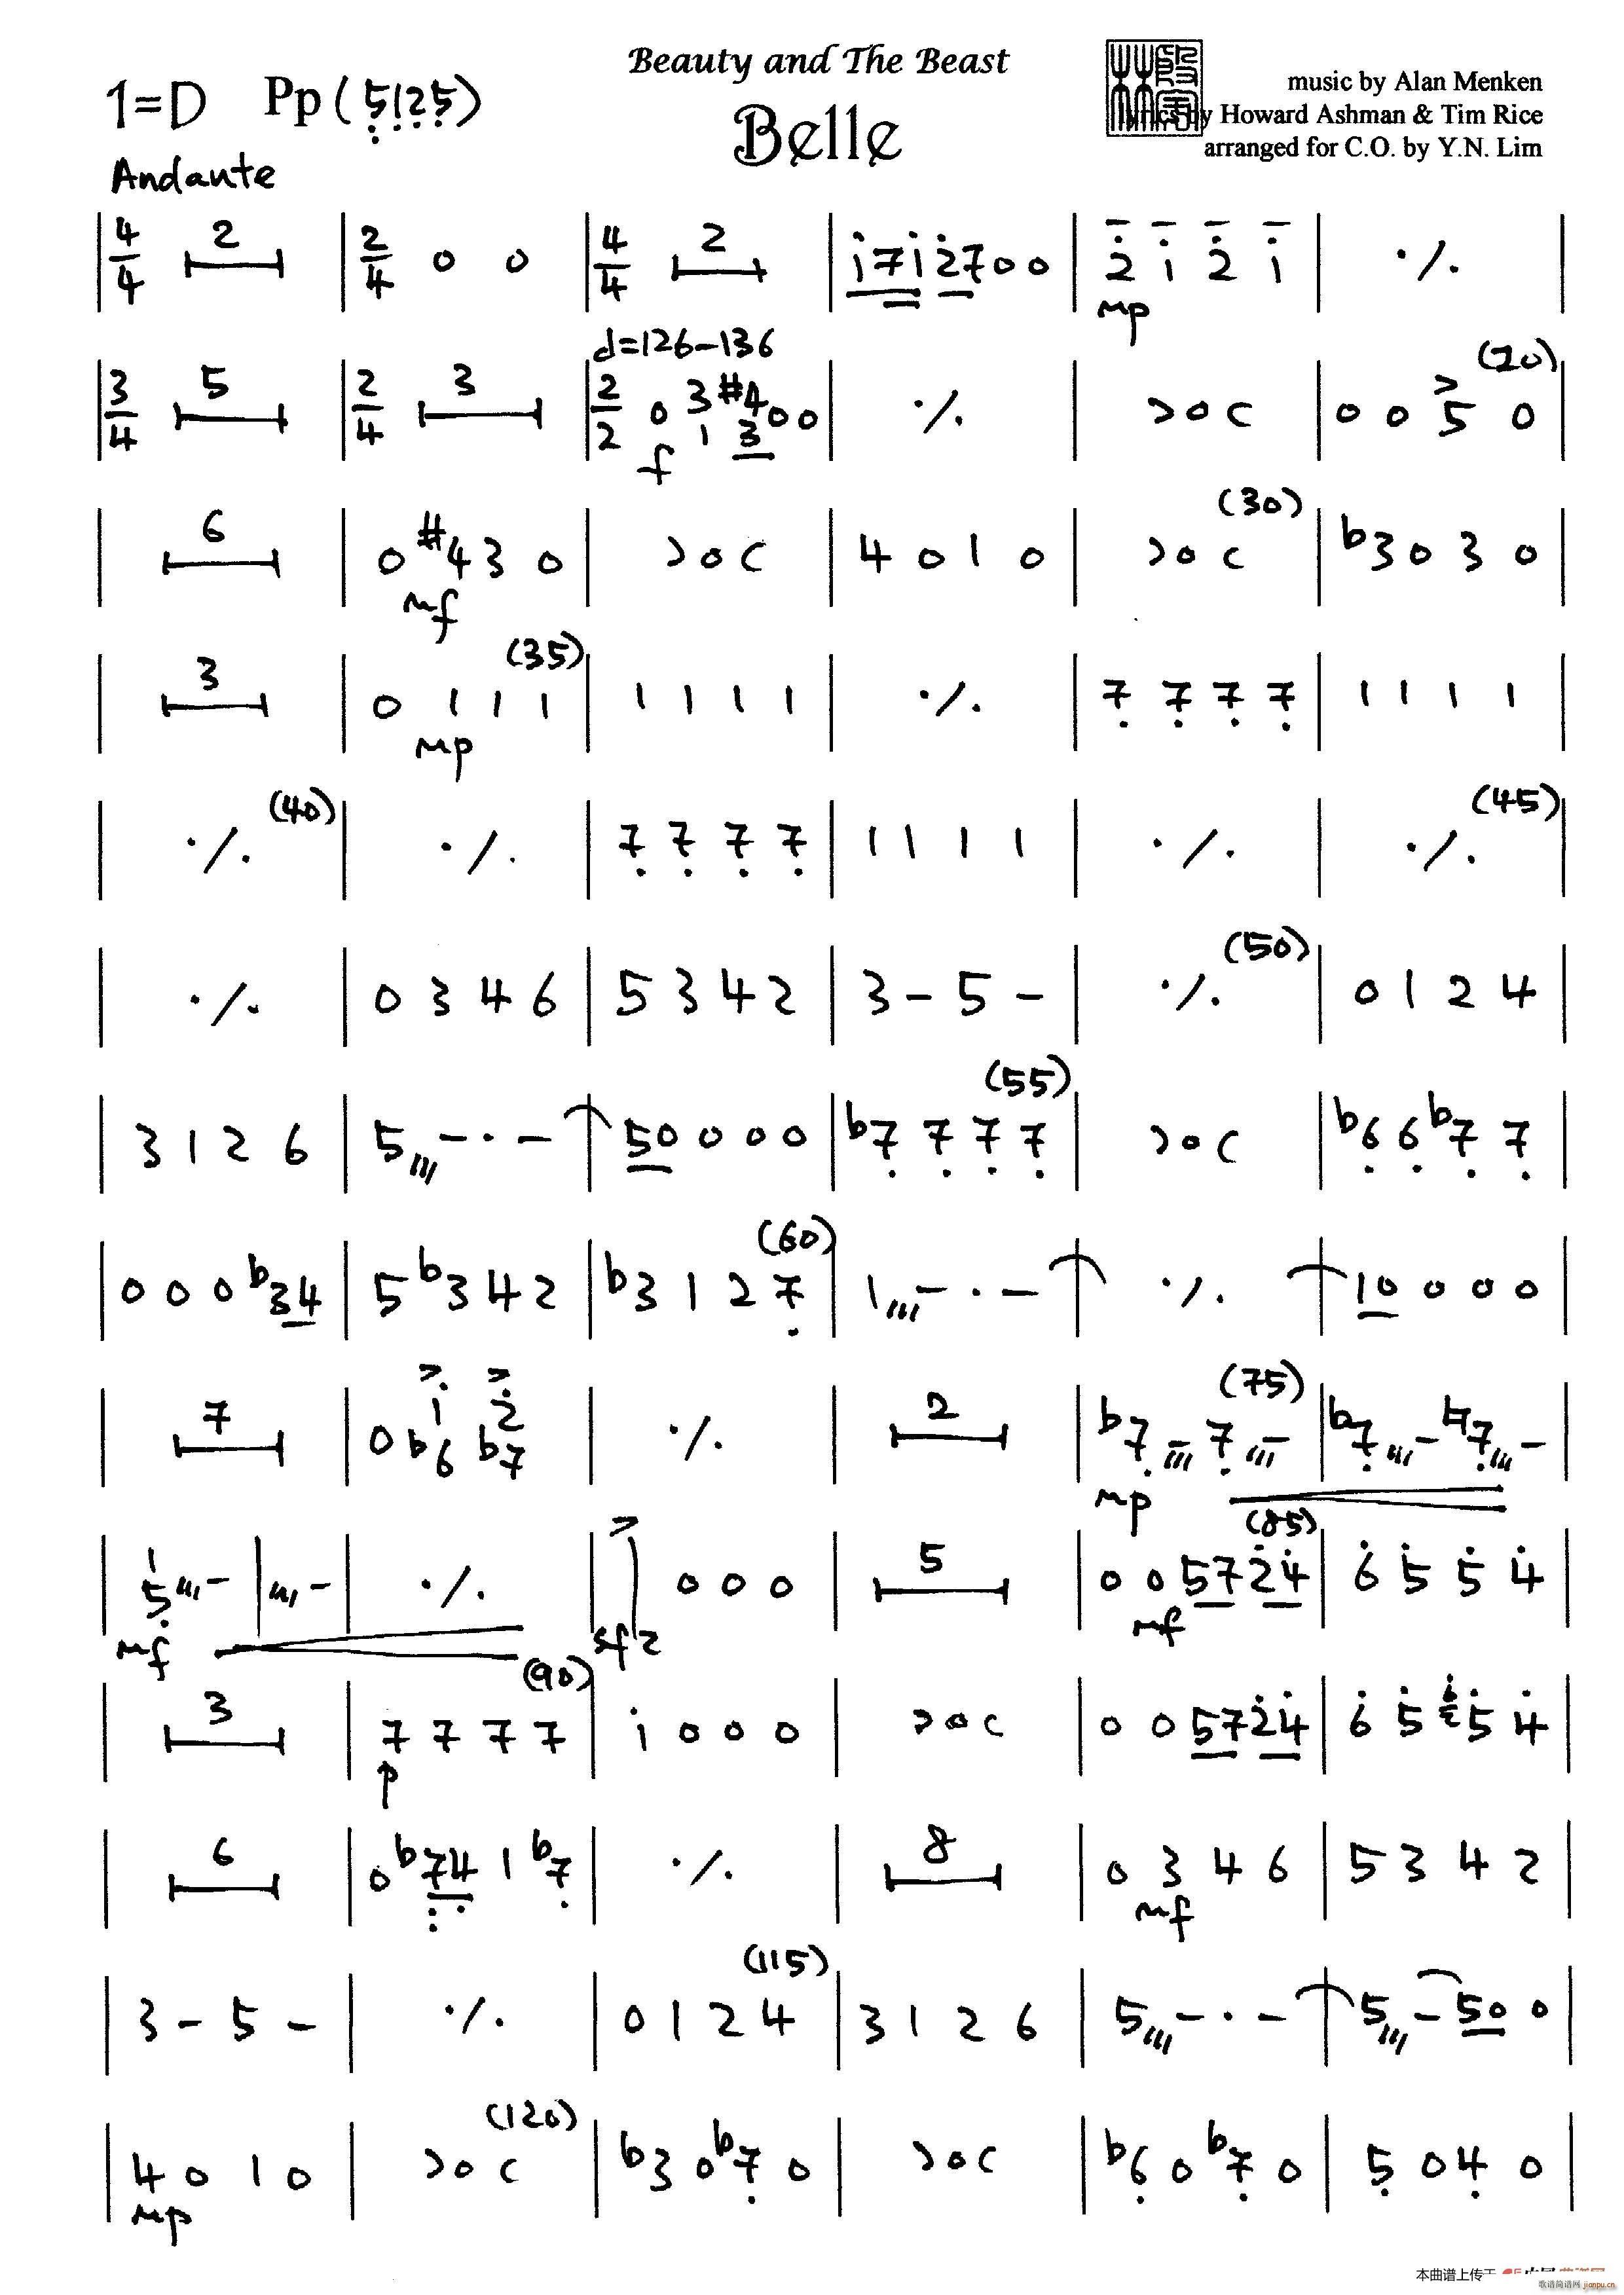 Beauty and The Beast
1=D Pp (5125)
Belle
music by Alan Menken
by Howard Ashman & Tim Rice
arranged for C.O. by Y.N. Lim
Andante
4/4 2 | 2/4 0 0 | 4/4 2 | 1 7 1 2 7 0 0 | 2 1 2 1 | ·/. |
mp
d=126-136
(20)
3/4 5 | 2/4 3 | 2/2 0 3 #4 0 0 | ·/. | >0< | 0 0 5 0 |
1 3
f
(30)
6 | 0 #4 3 0 | >0< | 4 0 1 0 | >0< | b3 0 3 0 |
mf
(35)
3 | 0 1 1 1 | 1 1 1 1 | ·/. | 7 7 7 7 | 1 1 1 1 |
mp
(40) (45)
·/. | ·/. | 7 7 7 7 | 1 1 1 1 | ·/. | ·/. |
(50)
·/. | 0 3 4 6 | 5 3 4 2 | 3 - 5 - | ·/. | 0 1 2 4 |
(55)
3 1 2 6 | 5 - · - | 5 0 0 0 0 | b7 7 7 7 | >0< | b6 6 b7 7 |
(60)
0 0 0 b3 4 | 5 b3 4 2 | b3 1 2 7 | 1 - · - | ·/. | 1 0 0 0 0 |
(75)
1 2
7 | 0 b6 b7 | ·/. | 2 | b7 - 7 - | b7 - ♮7 - |
mp
(85)
1
5 - | - | ·/. | 0 0 0 | 5 | 0 0 5 7 2 4 | 6 5 5 4 |
mf sfz mf
(90)
3 | 7 7 7 7 | 1 0 0 0 | >0< | 0 0 5 7 2 4 | 6 5 5 4 |
p
6 | 0 b7 4 1 b7 | ·/. | 8 | 0 3 4 6 | 5 3 4 2 |
mf
(115)
3 - 5 - | ·/. | 0 1 2 4 | 3 1 2 6 | 5 - · - | 5 - 5 0 0 |
(120)
4 0 1 0 | >0< | b3 0 b7 0 | >0< | b6 0 b7 0 | 5 0 4 0 |
mp
本曲谱上传于
歌谱简谱网 jianpu.cn